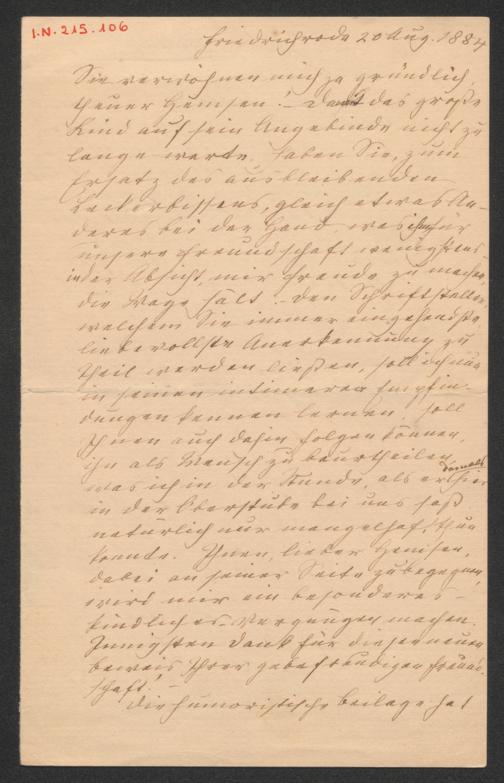 I.N. 215.106
Friedrichroda 20 Aug. 1884
Sie verwöhnen mich ja gründlich,
theuer Hemsen! – Damit das große
Kind auf sein Angebinde nicht zu
lange warte, haben Sie, zum
Ersatz des ausbleibenden
Leckerbissens, gleich etwas An-
deres bei der Hand, was ihm für
unsere Freundschaft wenigstens
in der Absicht, mir Freude zu machen,
die Wage hält. – Den Schriftsteller
welchem Sie immer eingehendste
liebevollste Anerkennung zu
Theil werden ließen, soll ich nun
in seinen intimeren Empfin-
dungen kennen lernen, soll
Ihnen auch dahin folgen können,
ihn als Mensch zu beurtheilen,
was ich in der Stunde, als er damals hier
in der Oberstube bei uns saß
natürlich nur mangelhaft thun
konnte. Ihnen, lieber Hemsen,
dabei an seiner Seite zu begegnen,
wird mir ein besonderes –
kindliches – Vergnügen machen.
Innigsten Dank für diesen neuen
Beweis Ihrer gebefreudigen Freund-
schaft! –
Die humoristische Beilage hat